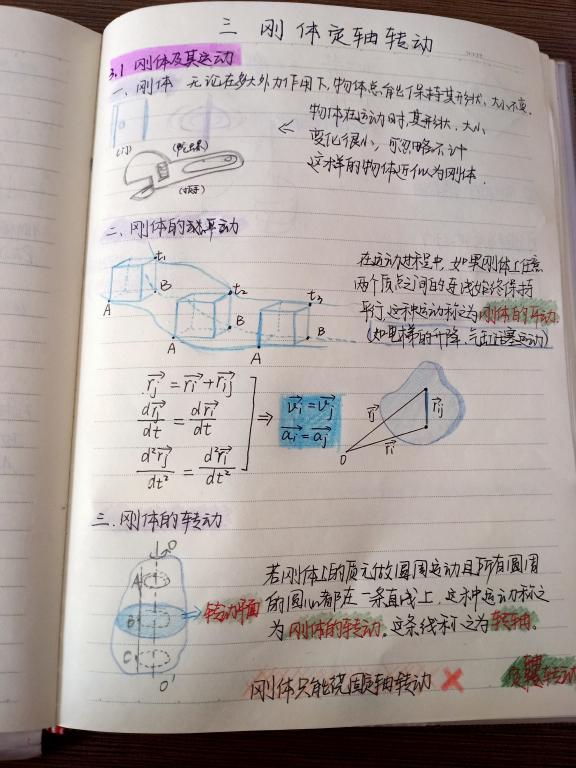 三 刚体定轴转动
3.1 刚体及其运动
一、刚体 无论在多大外力作用下,物体总能保持其形状、大小不变.
物体在运动时,其形状、大小
变化很小,可忽略不计
这样的物体近似为刚体.
(门)
(陀螺)
(扳手)
二、刚体的平动
t₁
B
A
t₂
B
A
t₃
B
A
在运动过程中,如果刚体上任意
两个质点之间的连线始终保持
平行,这种运动称之为刚体的平动.
(如电梯的升降、气缸活塞运动)
r⃗j = r⃗i + r⃗ij
dr⃗j/dt = dr⃗i/dt
d²r⃗j/dt² = d²r⃗i/dt²
⇒
v⃗i = v⃗j
a⃗i = a⃗j
r⃗j
r⃗ij
r⃗i
O
三、刚体的转动
O
A
B
C
O'
转动平面
若刚体上的质元做圆周运动且所有圆周
的圆心都在一条直线上,这种运动称之
为刚体的转动。这条线称之为转轴。
刚体只能绕固定轴转动 ×
转动